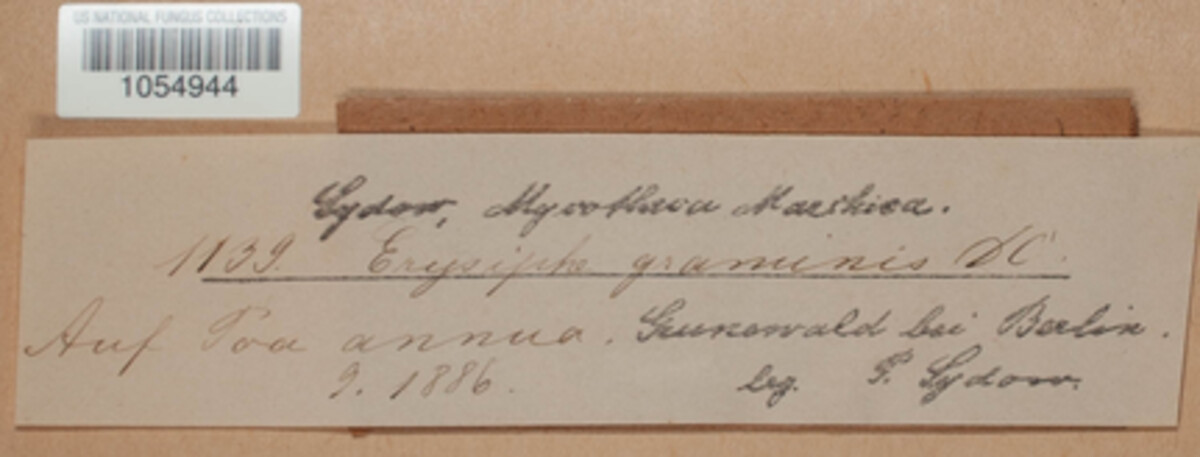 US NATIONAL FUNGUS COLLECTIONS
1054944
Sydow, Mycotheca Marchica.
1139. Erysiphe graminis DC.
Auf Poa annua. Grunewald bei Berlin.
9. 1886. leg. P. Sydow.